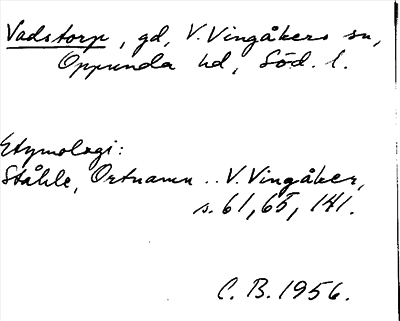 Vadstorp, gd, V. Vingåkers sn,
Oppunda hd, Söd. l.
Etymologi:
Ståhle, Ortnamn .. V. Vingåker,
s. 61, 65, 141.
C. B. 1956.